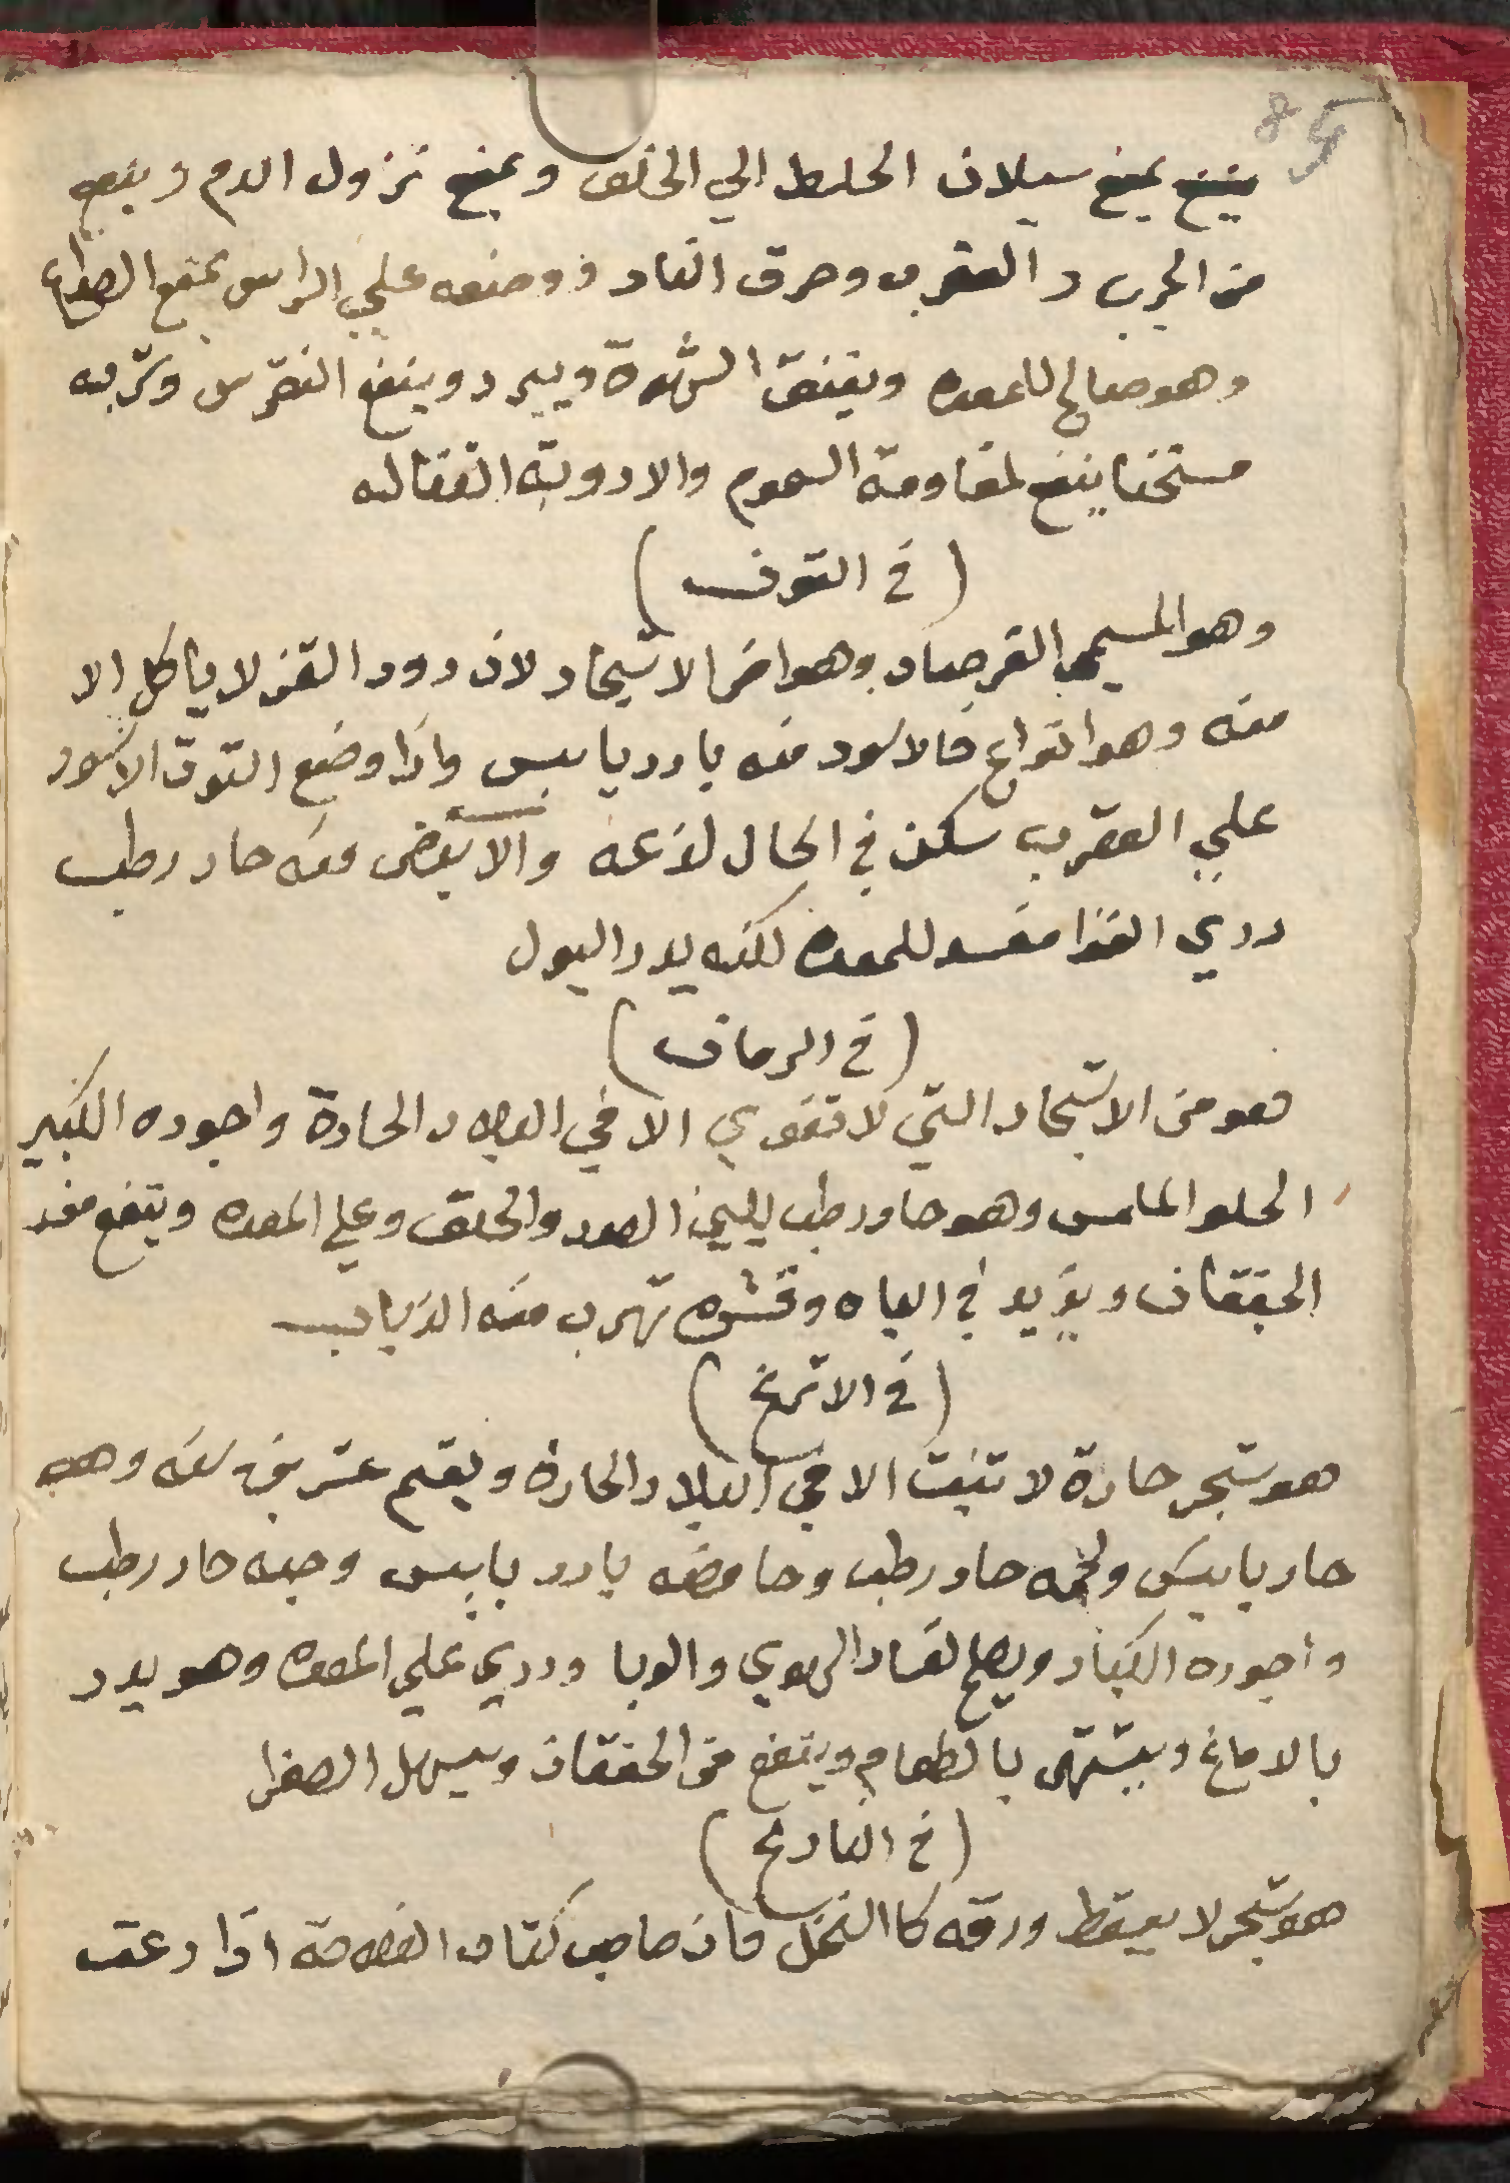 85
ينفع يمنع سيلان الخلط الي الحلق ويمنع نزول الدم وينفع
من الجرب والعقرب وحرق النار ووضعه علي الراس يمنع الصداع
وهو صالح للمعده ويفتق الشهوة ويبرد وينفع النقرس وشربه
مسخنا ينفع لمقاومة السموم والادوية القتاله
(في التوت)
وهو المسمي الفرصاد وهو اضر الاشجار لان دود القز لا ياكل الا
منه وهو انواع فالاسود منه بارد يابس واذا وضع التوت الاسود
علي العقرب سكن في الحال لذعه والابيض منه حار رطب
ردي الغذا مفسد للمعده لكنه يدر البول
(في الرمان)
فهو من الاشجار التي لا تقوي الا في البلاد الحارة واجوده الكبير
الحلو المامس وهو حار رطب يلين الصدر والحلق وعلي المعده وينفع منه
الخفقان ويزيد في الباه وقشوره تهرب منه الذباب
(في الاترنج)
هو شجر حارة لا تنبت الا في البلاد الحارة ويقيم عشرين سنه وهو
حار يابس ولحمه حار رطب وحامضه بارد يابس وحبه حار رطب
واجوده الكبار ويصلح لفساد الهوي والوبا وردي علي المعده وهو يدر
بالادماغ ويشتهي بالطعام وينفع من الخفقان ويسهل الصفرا
(في النارنج)
هو شجر لا يسقط ورقه كا النخل قان صاحب كتاب الفلاحة اذا رعت